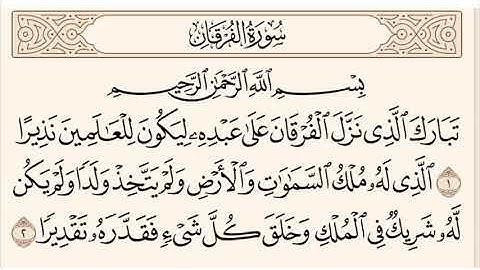 سُورَةُ الفُرْقَانِ
بِسْمِ اللَّهِ الرَّحْمَٰنِ الرَّحِيمِ
تَبَارَكَ الَّذِي نَزَّلَ الْفُرْقَانَ عَلَىٰ عَبْدِهِۦ لِيَكُونَ لِلْعَالَمِينَ نَذِيرًا
١ الَّذِي لَهُۥ مُلْكُ السَّمَٰوَٰتِ وَالْأَرْضِ وَلَمْ يَتَّخِذْ وَلَدًا وَلَمْ يَكُن
لَّهُۥ شَرِيكٌ فِي الْمُلْكِ وَخَلَقَ كُلَّ شَيْءٍ فَقَدَّرَهُۥ تَقْدِيرًا ٢